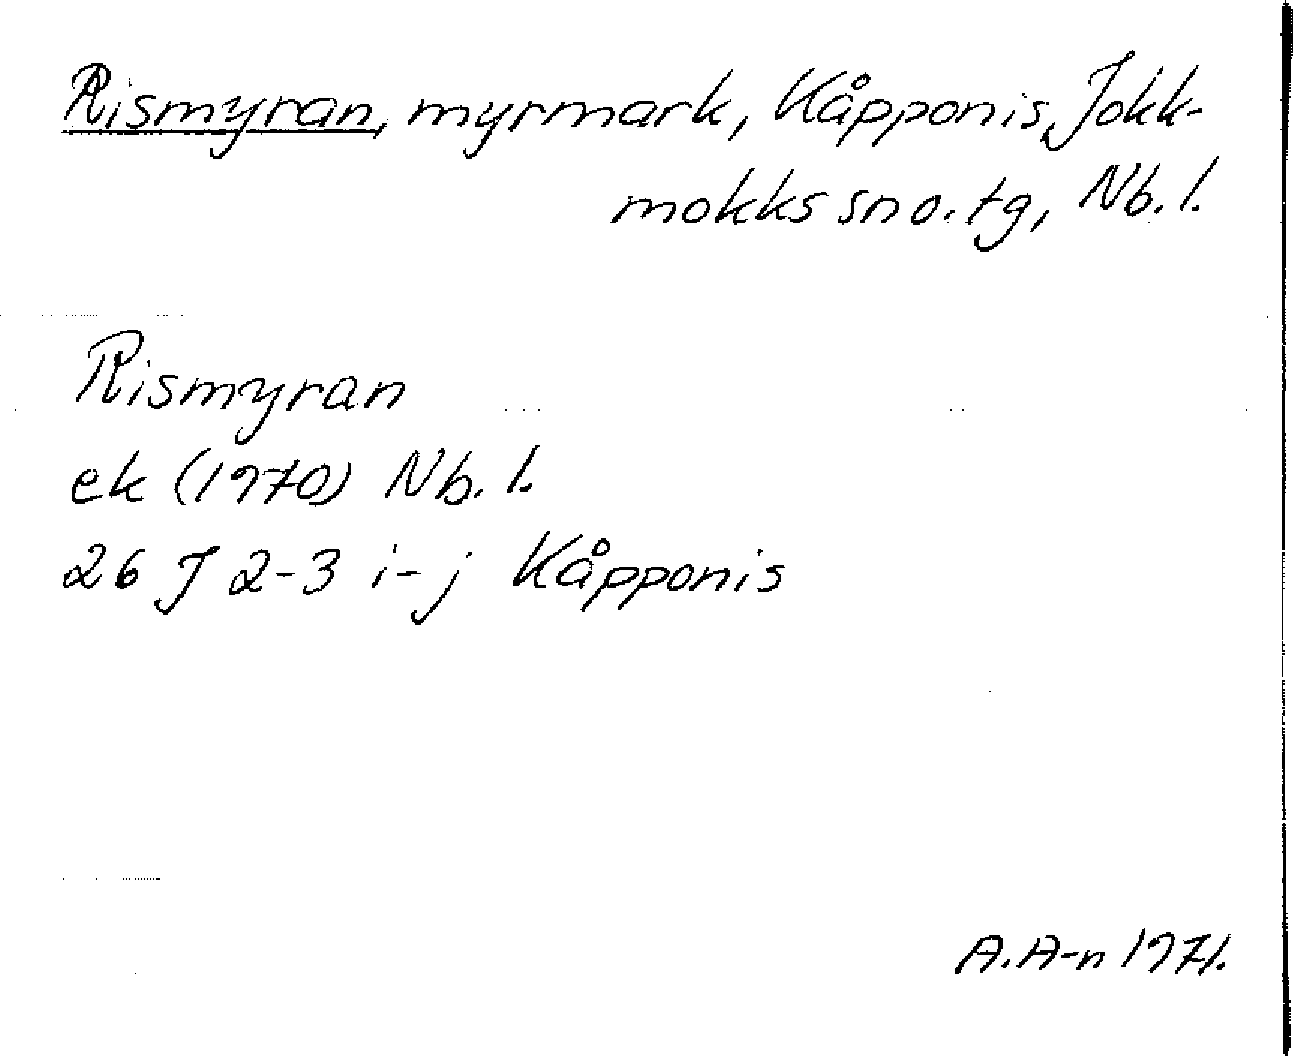 Rismyran, myrmark, Kåpponis, Jokk-
mokks sn o. tg, Nb. l.
Rismyran
ek (1970) Nb. l.
26 J 2-3 i-j Kåpponis
A. A-n 1971.